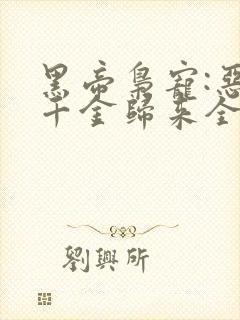 黑帝梟寵:惡
千金歸來全
劉興所